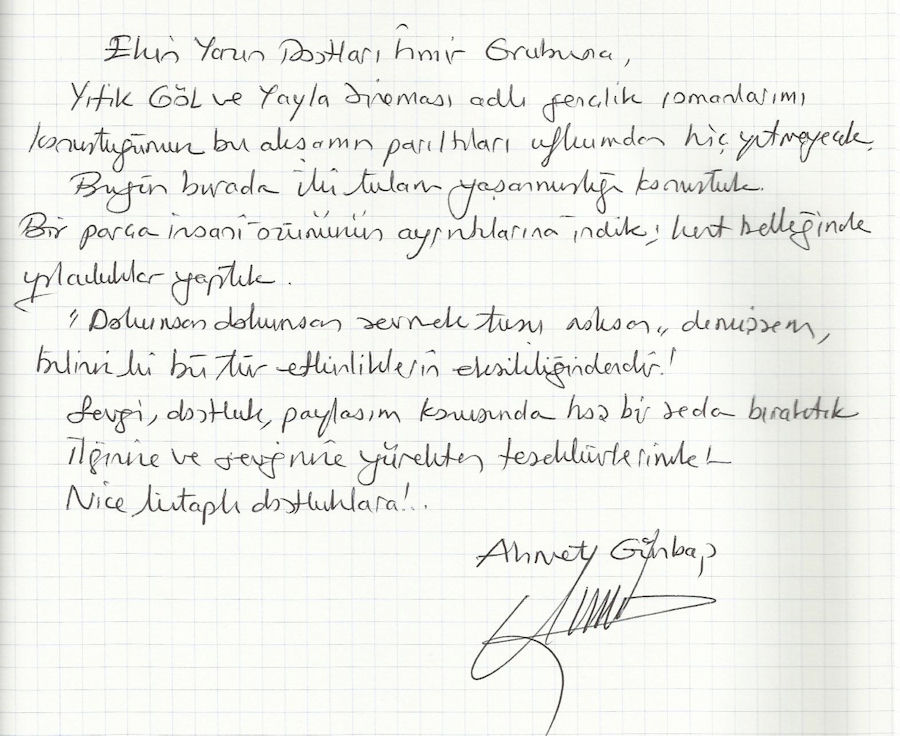 Ekin Yazın Dostları İzmir Grubuna,
Yitik Göl ve Yayla Sineması adlı gençlik romanlarımı
konuştuğumuz bu akşamın parıltıları ufkumdan hiç yitmeyecek.
Bugün burada iki tutam yaşanmışlığı konuştuk.
Bir parça insanî özümüzün ayrıntılarına indik; kent belleğinde
yolculuklar yaptık.
"Dokunsan dokunsan sevmek tuşu aksam" demişsem,
bilin ki bu tür etkinliklerin eksikliğindendir!
Sevgi, dostluk, paylaşım konusunda hoş bir seda bıraktık
İlginize ve sevginize yürekten teşekkürlerimle!
Nice kitaplı dostluklara!..
Ahmet Günbaş